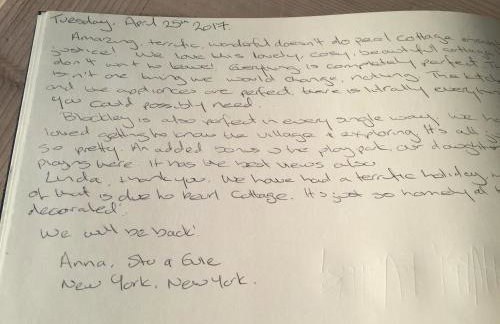 Tuesday, April 25th 2017.
Amazing, terrific, wonderful doesn't do pearl cottage
justice! We love this lovely, cosy, beautiful cottage
don't want to leave! Everything is completely perfect. 
isn't one thing we would change, nothing. The kitchen
and the appliances are perfect there is literally everything
you could possibly need.
Blockley is also perfect in every single way. We have
loved getting to know the village & exploring. It's all
so pretty. An added bonus is the play park our daughter
playing here. It has the best views also.
Linda, thank you. We have had a terrific holiday,
of that is due to Pearl Cottage. It's just so homely
decorated!
We will be back!
Anna, Stu & Evie
New York, New York.